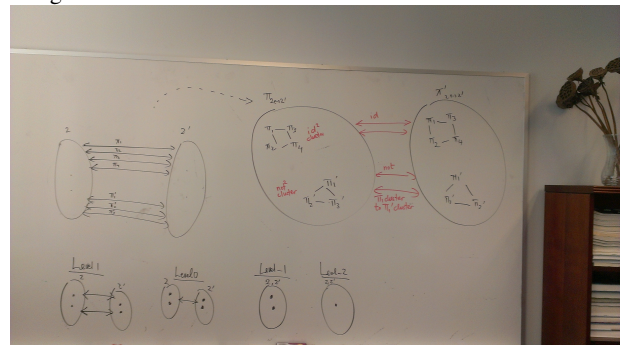 2 2'
π₁
π₂
π₃
π₄
π₁'
π₂'
π₃'
Π₂↔₂'
π₁ π₃
π₂ π₄
id² cluster
not² cluster
π₁'
π₂' π₃'
id
not
π₁ cluster
to π₁' cluster
π₁ π₃
π₂ π₄
π₁'
π₂' π₃'
Level 1
2 2'
Level 0
2 2'
Level -1
2,2'
Level -2
2,2'